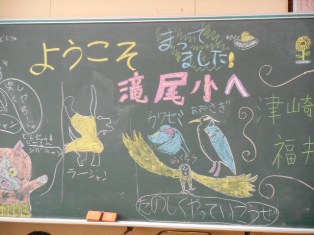 ようこそ
まってて
ました!
滝尾小へ
カワセミ
あおさぎ
津崎
福井
ラージャン
ふくろう
たのしくやっていこうぜ